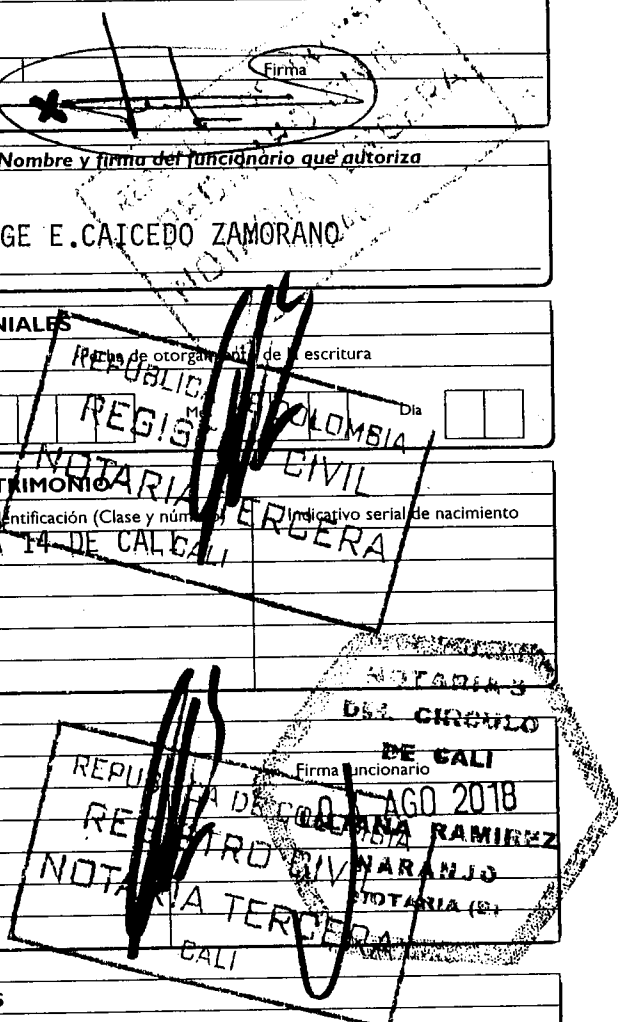 Firma
Nombre y firma del funcionario que autoriza
GE E.CAICEDO ZAMORANO
NIALES
Fecha de otorgamiento de la escritura
Día
REPUBLICA DE COLOMBIA
REGISTRO CIVIL
NOTARIA TERCERA
CALI
TRIMONIO
entificación (Clase y número)
Indicativo serial de nacimiento
A 14 DE CALI
NOTARIA 3
DEL CIRCULO
DE CALI
Firma funcionario
AGO 2018
RAMIREZ
NARANJO
NOTARIA (E)
REPUBLICA DE COLOMBIA
REGISTRO CIVIL
NOTARIA TERCERA
CALI
S